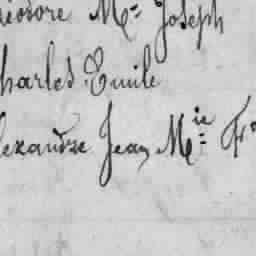 éodore Mie Joseph
harles Emile
lexandre Jean Mie Fr